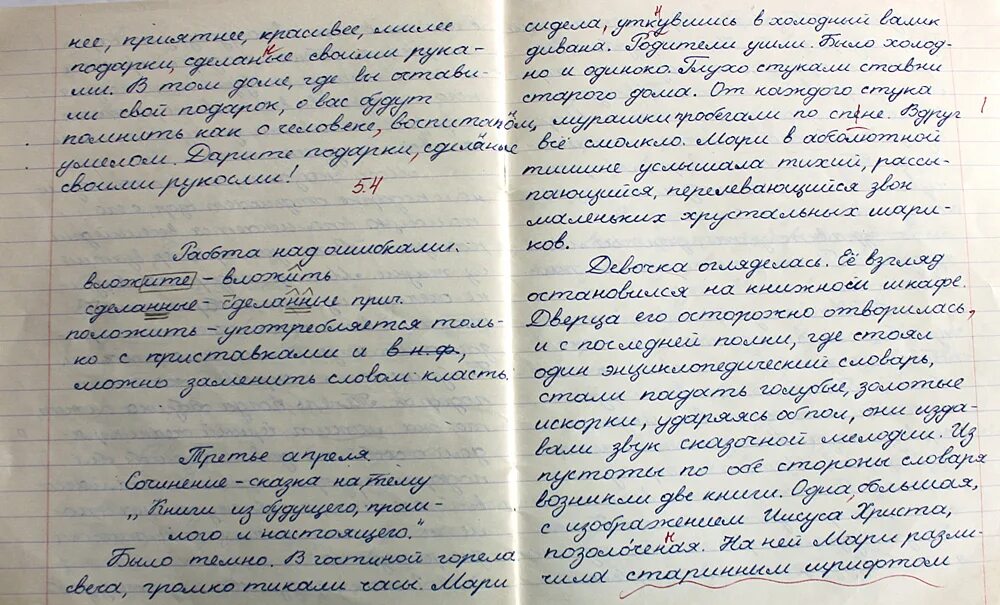 нее, приятнее, красивее, милее
подарки, сделанные своими рука-
ми. В том доме, где вы остави-
ли свой подарок, о вас будут
помнить как о человеке, воспитанном,
умелом. Дарите подарки, сделаные
своими руками!
5.4
Работа над ошибками.
вложите - вложить
сделанные - сделанные прич.
положить - употребляется толь-
ко с приставками и в н.ф.,
можно заменить словом класть.
Третье апреля
Сочинение - сказка на тему
„Книги из будущего, прош-
лого и настоящего."
Было темно. В гостиной горела
свеча, громко тикали часы. Мари
сидела, уткнувшись в холодный валик
дивана. Родители ушли. Было холод-
но и одиноко. Глухо стукали ставни
старого дома. От каждого стука
мурашки пробегали по спине. Вдруг
всё смолкло. Мари в абсолютной
тишине услышала тихий, рассы-
пающийся, переливающийся звон
маленьких хрустальных шари-
ков.
Девочка огляделась. Её взгляд
остановился на книжном шкафе.
Дверца его осторожно отворилась,
и с последней полки, где стоял
один энциклопедический словарь,
стали падать голубые, золотые
искорки, ударяясь об пол, они изда-
вали звук сказочной мелодии. Из
пустоты по обе стороны словаря
возникли две книги. Одна, большая,
с изображением Иисуса Христа,
позолоченная. На ней Мари разли-
чила старинным шрифтом